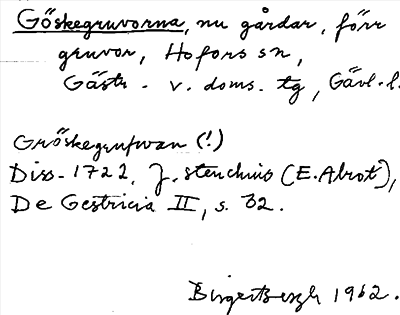 Göskegruvorna, nu gårdar, förr
gruvor, Hofors sn,
Gästr. v. doms. tg, Gävl. l.
Gröskegrufwan (!)
Diss. 1722, J. Stenchnis (E. Alrot),
De Gestricia II, s. 32.
Birger Bergh 1962.